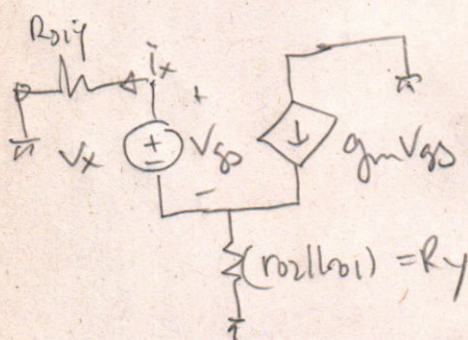 Rsig
ix
+
Vx
+
-
Vgs
gmVgs
-
(ro2||ro1) = Ry